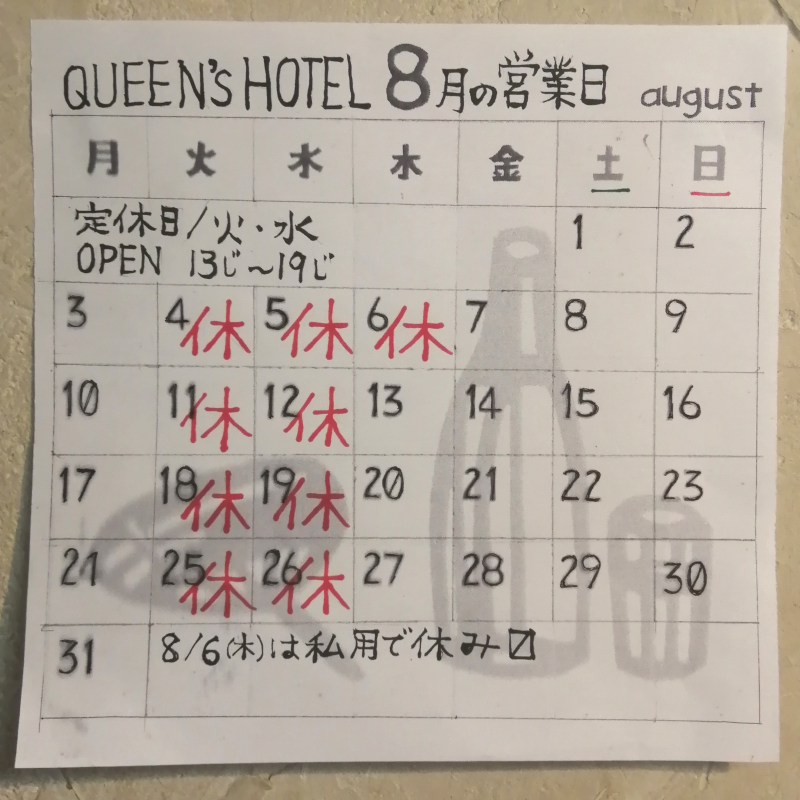 QUEEN'S HOTEL 8月の営業日 august
月 火 水 木 金 土 日
定休日/火・水
OPEN 13じ〜19じ
1 2
3 4休 5休 6休 7 8 9
10 11休 12休 13 14 15 16
17 18休 19休 20 21 22 23
24 25休 26休 27 28 29 30
31 8/6(木)は私用で休み〼